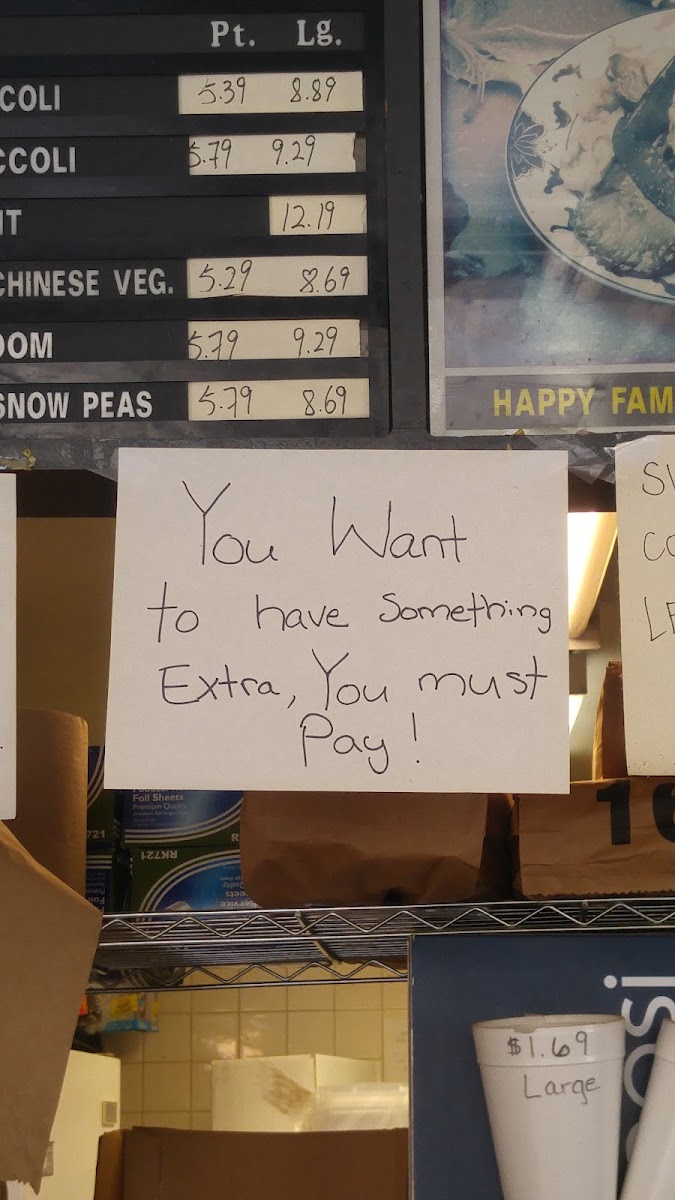 Pt. Lg.
COLI 5.39 8.89
CCOLI 5.79 9.29
IT 12.19
CHINESE VEG. 5.29 8.69
OOM 5.79 9.29
SNOW PEAS 5.79 8.69
HAPPY FAM
You Want
to have Something
Extra, You must
Pay!
Foil Sheets
Premium Quality
721
RK721
R
16
$1.69
Large